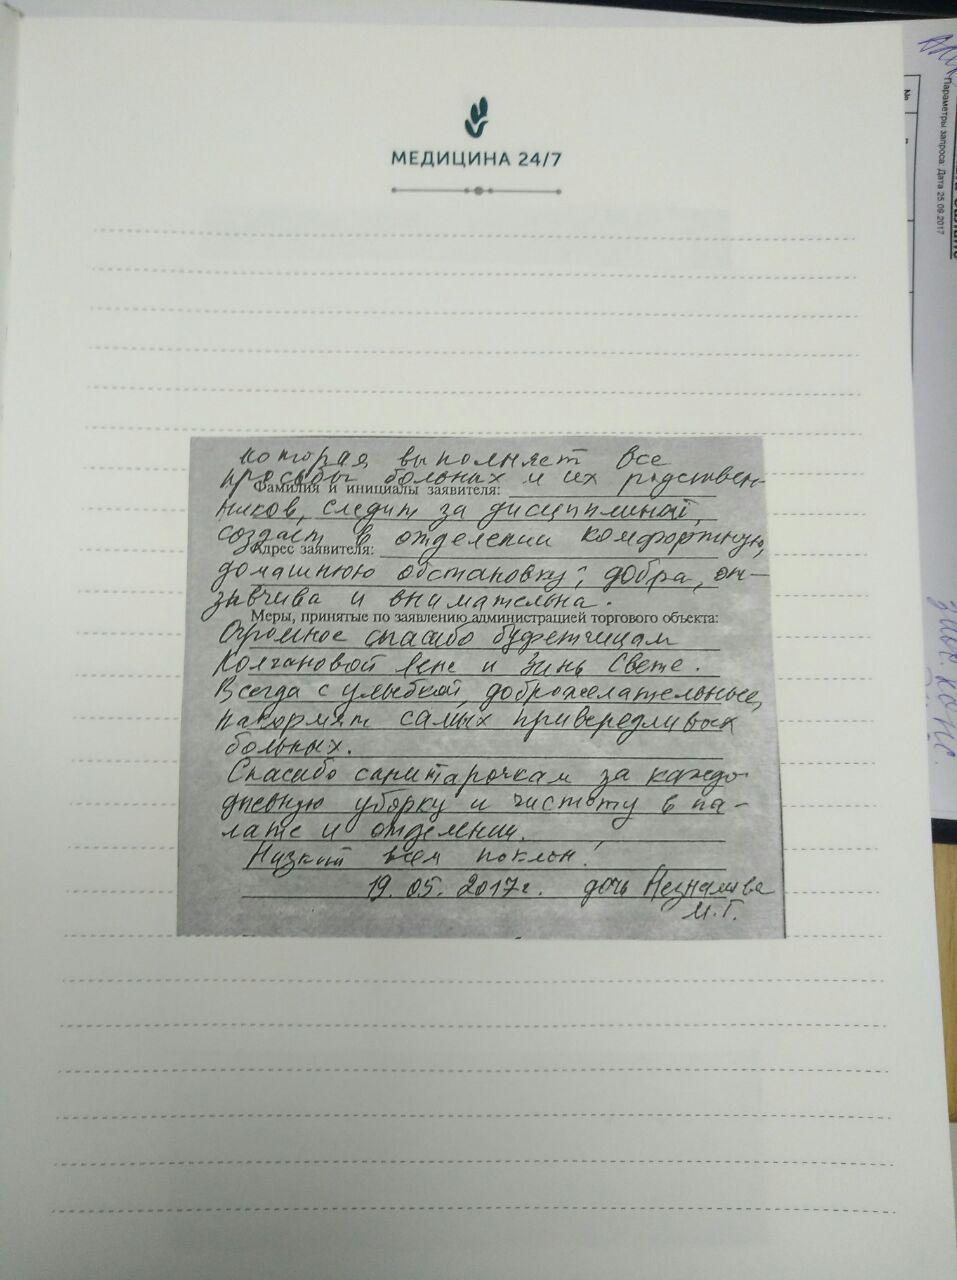 МЕДИЦИНА 24/7
которая выполняет все
просьбы больных и их родствен-
Фамилия и инициалы заявителя:
ников, следит за дисциплиной,
создает в отделении комфортную,
Адрес заявителя:
домашнюю обстановку; добра, от-
зывчива и внимательна.
Меры, принятые по заявлению администрацией торгового объекта:
Огромное спасибо буфетчицам
Колгановой Лене и Зинь Свете.
Всегда с улыбкой, доброжелательные,
накормят самых привередливых
больных.
Спасибо санитарочкам за каждо
дневную уборку и чистоту в па-
лате и отделении.
Низкий всем поклон!
19.05.2017г. дочь
М.Г.
№
Параметры запроса: Дата 25.09.2017